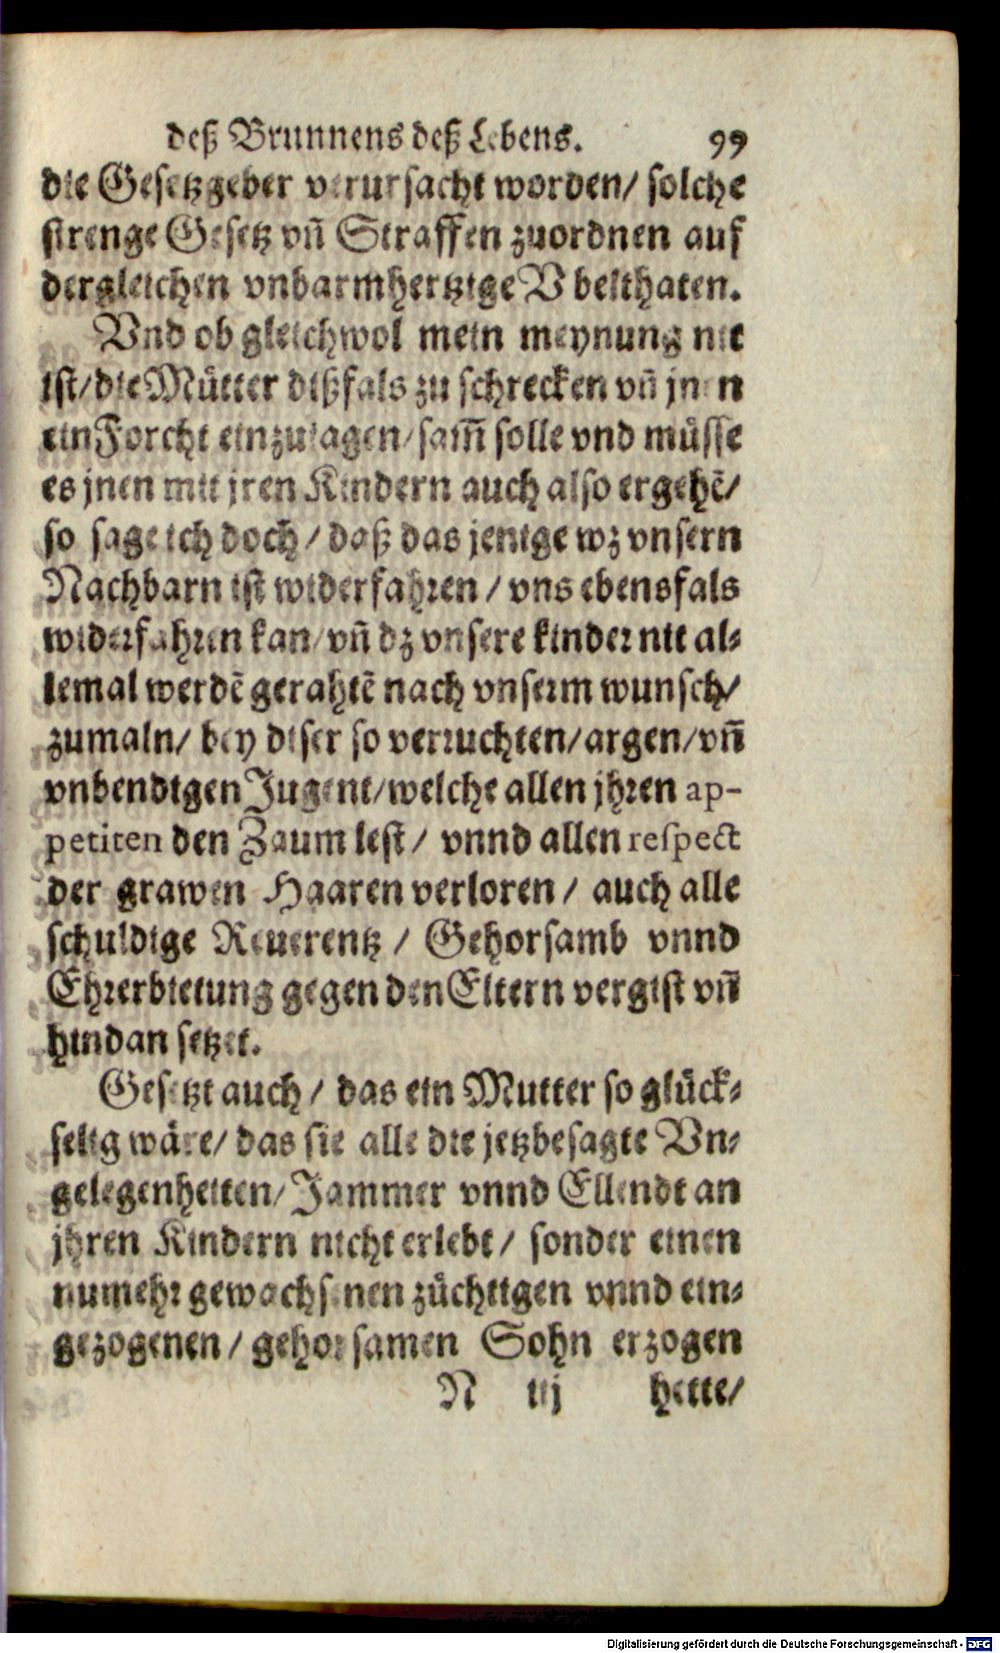 deß Brunnens deß Lebens. 99
die Gesetzgeber verursacht worden/ solche
strenge Gesetz vñ Straffen zuordnen auf
dergleichen vnbarmhertzige Vbelthaten.
Vnd ob gleichwol mein meynung nit
ist/die Mütter dißfals zu schrecken vñ jnen
ein Forcht einzujagen/sam̃ solle vnd müsse
es jnen mit jren Kindern auch also ergehẽ/
so sage ich doch/ daß das jenige wz vnsern
Nachbarn ist widerfahren/ vns ebensfals
widerfahren kan/vñ dz vnsere kinder nit al-
lemal werdẽ gerahtẽ nach vnserm wunsch/
zumaln/ bey diser so verruchten/argen/vñ
vnbendigen Jugent/welche allen jhren ap-
petiten den Zaum lest/ vnnd allen respect
der grawen Haaren verloren/ auch alle
schuldige Reuerentz/ Gehorsamb vnnd
Ehrerbietung gegen den Eltern vergist vñ
hindan setzet.
Gesetzt auch/ das ein Mutter so glück-
selig wäre/ das sie alle die jetzbesagte Vn-
gelegenheiten/Jammer vnnd Ellendt an
jhren Kindern nicht erlebt/ sonder einen
numehr gewachsenen züchtigen vnnd ein-
gezogenen/ gehorsamen Sohn erzogen
N iij hette/
Digitalisierung gefördert durch die Deutsche Forschungsgemeinschaft - DFG